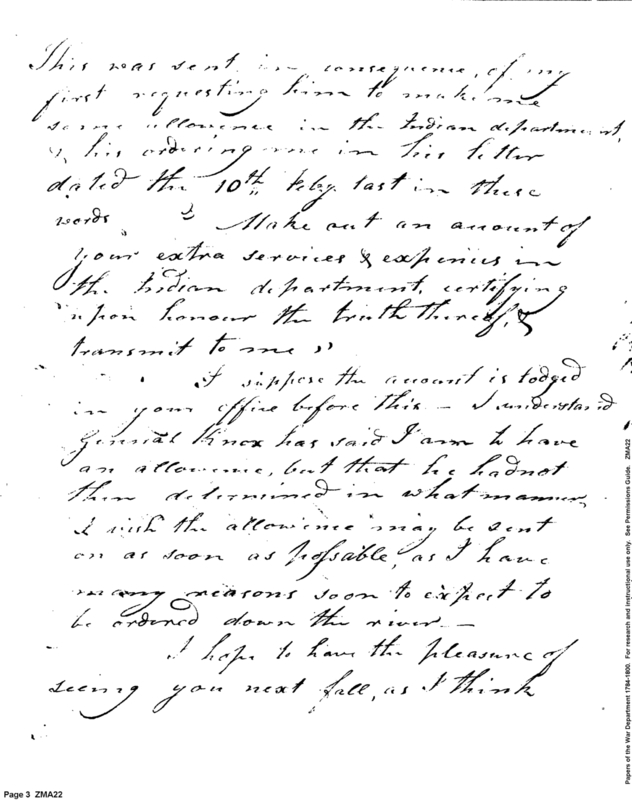 This was sent in consequence, of my
first requesting him to make me
some allowence in the Indian department,
& his ordering me in his letter
dated the 10th Feby last in these
words " Make out an account of
your extra services & expences in
the Indian department, certifying
upon honour the truth thereof, &
transmit to me "
I suppose the account is lodged
in your office before this – I understand
General Knox has said I am to have
an allowence, but that he had not
then determined in what manner,
I wish the allowence may be sent
on as soon as possable, as I have
many reasons soon to expect to
be ordered down the river –
I hope to have the pleasure of
seeing you next fall, as I think
Page 3 ZMA22
Papers of the War Department 1784-1800. For research and instructional use only. See Permissions Guide. ZMA22